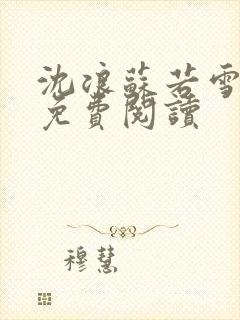 沈浪蘇若雪
免費閱讀
穆慧